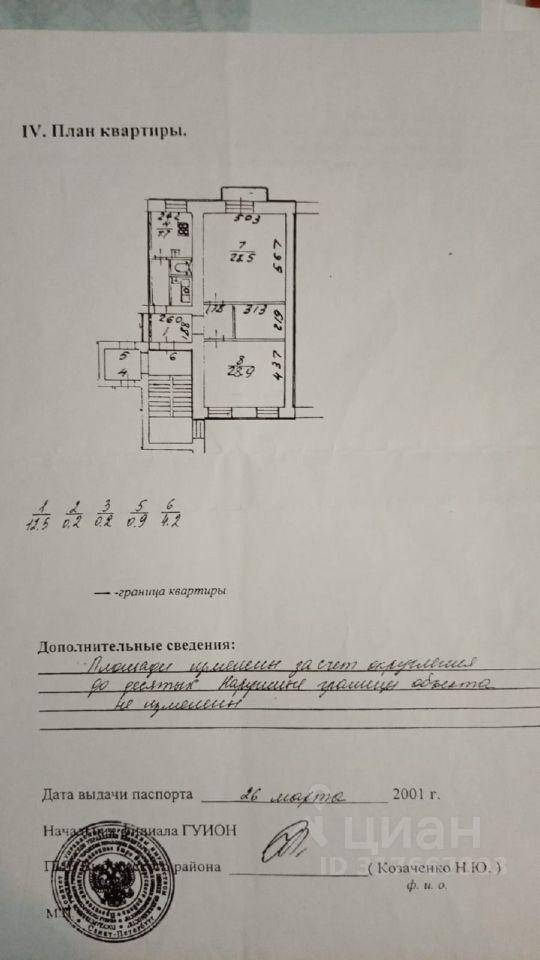 IV. План квартиры.
242
503
4
7.7
7
28.5
567
260
178
313
219
1
188
5
6
4
8
23.9
437
1 2 3 5 6
12.5 0.2 0.2 0.9 4.2
-граница квартиры
Дополнительные сведения:
Площади изменены за счет округления
до десятых Наружные границы объекта
не изменены
Дата выдачи паспорта 26 марта 2001 г.
Начальник филиала ГУИОН
района ( Козаченко Н.Ю. )
ф. и. о.
М.П.
Санкт-Петербург
циан